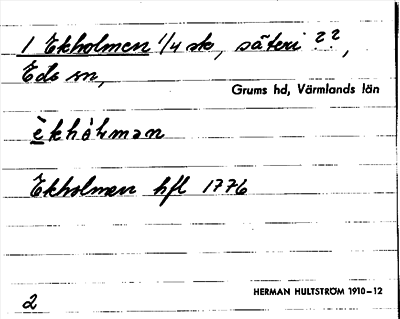 1 Ekholmen 1/4 sk, säteri ??,
Eds sn,
Grums hd, Värmlands län
èkhòlman
Ekholmen hfl 1776
HERMAN HULTSTRÖM 1910–12
2